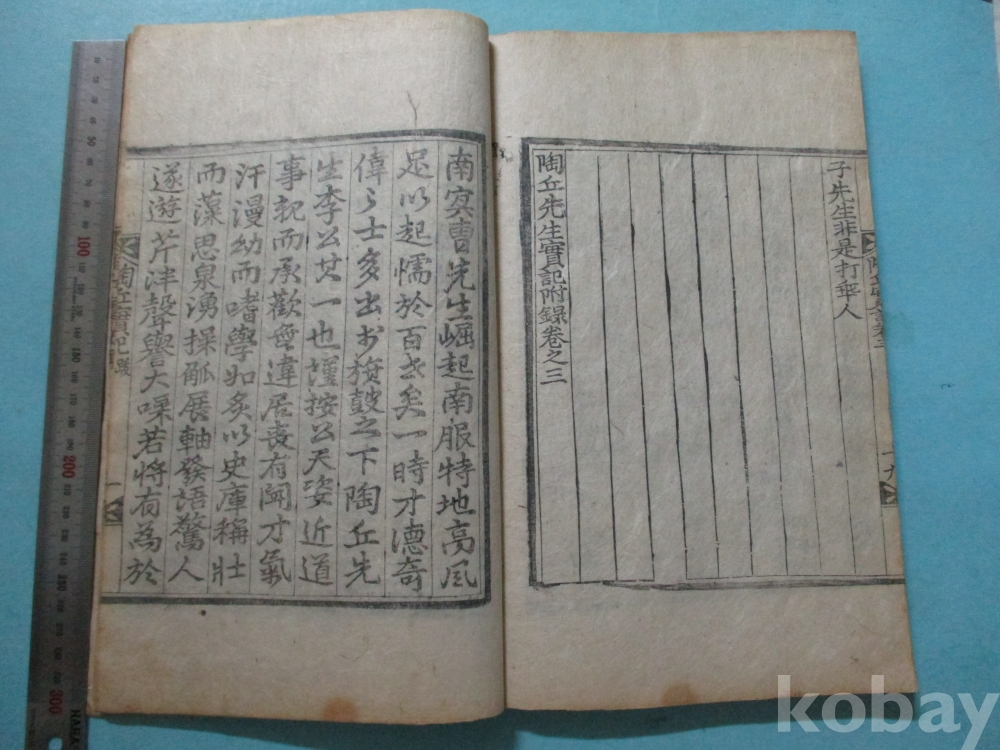 子先生非是打乖人
陶丘先生實記附錄卷之三
南冥曺先生崛起南服特地高风
足以起懦於百世矣一時才德奇
偉之士多出於旗鼓之下陶丘先
生李公其一也謹按公天姿近道
事親而承歡無違居喪有聞才氣
汗漫幼而嗜學如炙以史庫稱壯
而藻思泉湧操觚展軸發語驚人
遂遊芹泮聲譽大噪若將有為於
陶丘實記跋
一
kobay